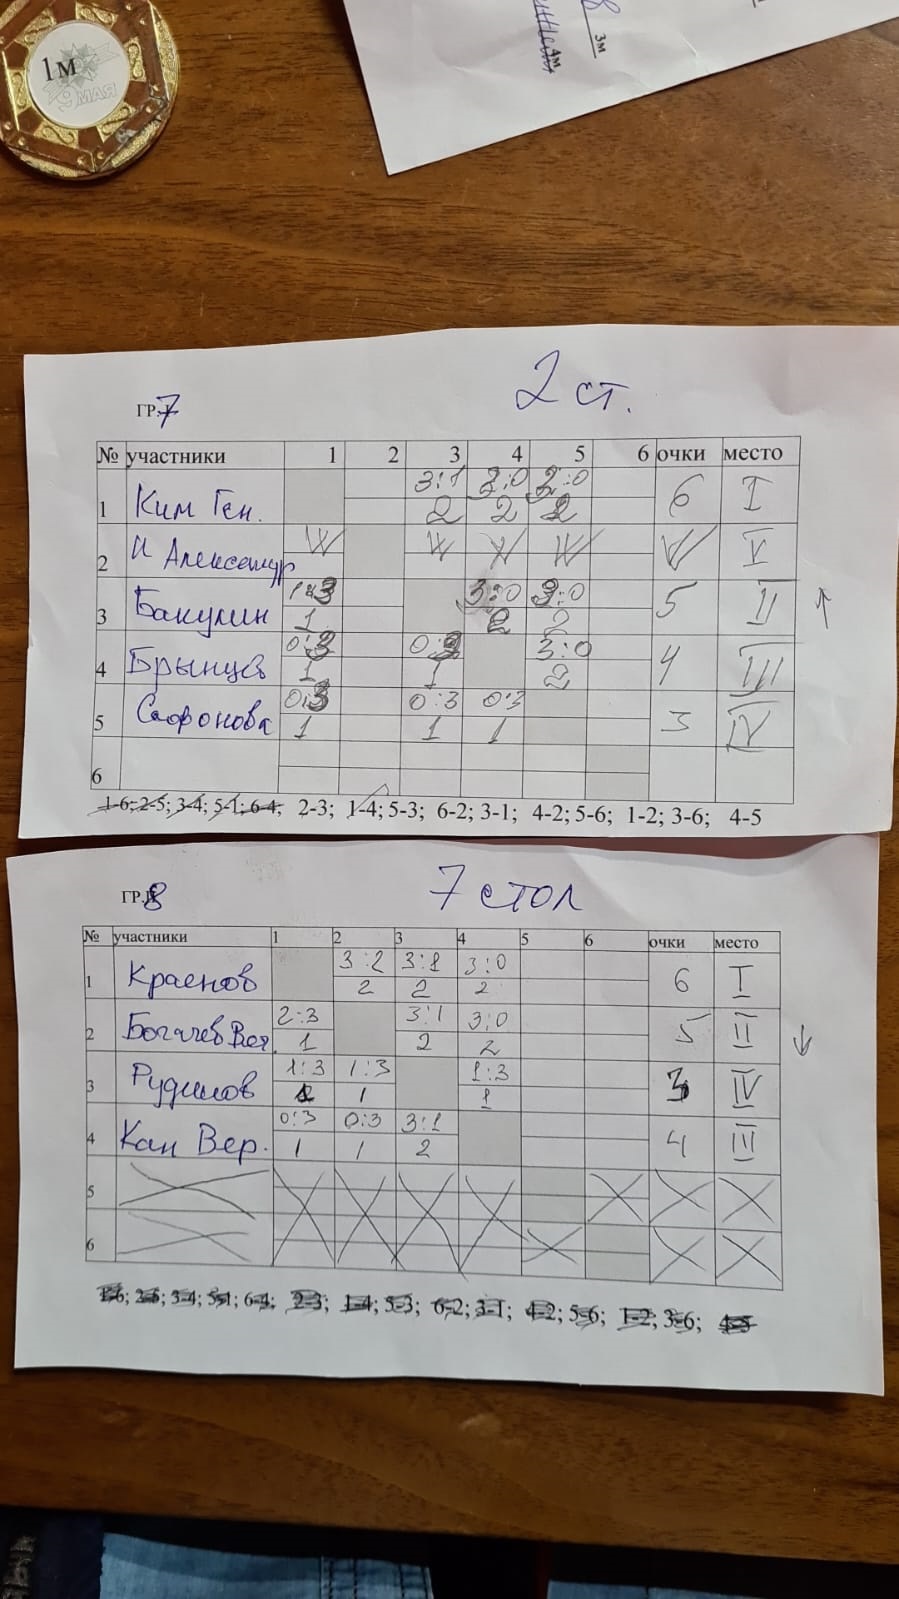 1м
9 МАЯ
3м
4м
ГР.7
2 ст.
№ участники 1 2 3 4 5 6 очки место
1 Ким Ген. 3:1 3:0 3:0 6 I
2 2 2
2 И Александр W W W W W V
3 Бакулин 1:3 3:0 3:0 5 II ↑
1 2 2
4 Брынцев 0:3 0:3 3:0 4 III
1 1 2
5 Сафонова 0:3 0:3 0:3 3 IV
1 1 1
6
1-6; 2-5; 3-4; 5-1; 6-4; 2-3; 1-4; 5-3; 6-2; 3-1; 4-2; 5-6; 1-2; 3-6; 4-5
ГР.8
7 стол
№ участники 1 2 3 4 5 6 очки место
1 Краснов 3:2 3:1 3:0 6 I
2 2 2
2 Богачев Вяч. 2:3 3:1 3:0 5 II ↓
1 2 2
3 Рудилов 1:3 1:3 1:3 3 IV
1 1 1
4 Кан Вер. 0:3 0:3 3:1 4 III
1 1 2
5
6
1-6; 2-5; 3-4; 5-1; 6-4; 2-3; 1-4; 5-3; 6-2; 3-1; 4-2; 5-6; 1-2; 3-6; 4-5